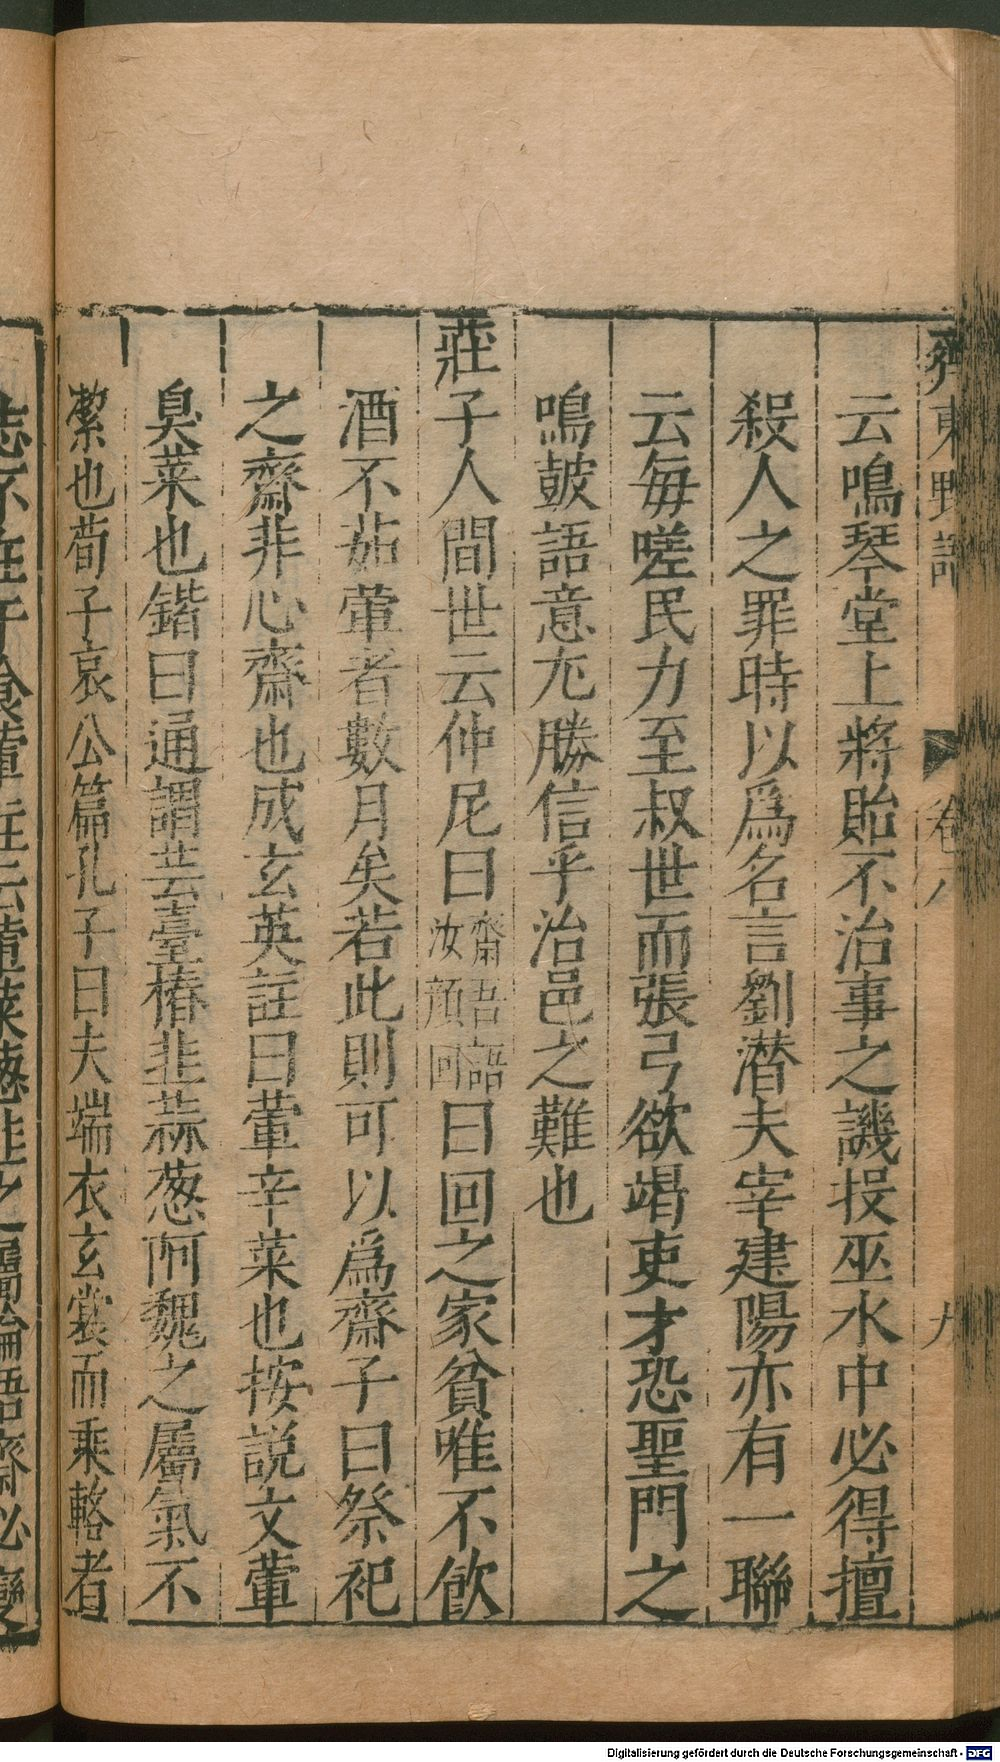 齊東野語 卷八 九
云鳴琴堂上將貽不治事之譏投巫水中必得擅
殺人之罪時以爲名言劉潛夫宰建陽亦有一聯
云每嗟民力至叔世而張弓欲竭吏才恐聖門之
鳴皷語意尤勝信乎治邑之難也
莊子人間世云仲尼曰齋吾語汝顔回曰回之家貧唯不飲
酒不茹葷者數月矣若此則可以爲齋子曰祭祀
之齋非心齋也成玄英註曰葷辛菜也按説文葷
臭菜也鍇曰通謂芸臺椿韭蒜葱阿魏之屬氣不
潔也荀子哀公篇孔子曰夫端衣玄裳而乘輅者
志不在于食葷註云葷菜葱韭之屬論語齋必變
Digitalisierung gefördert durch die Deutsche Forschungsgemeinschaft - DFG